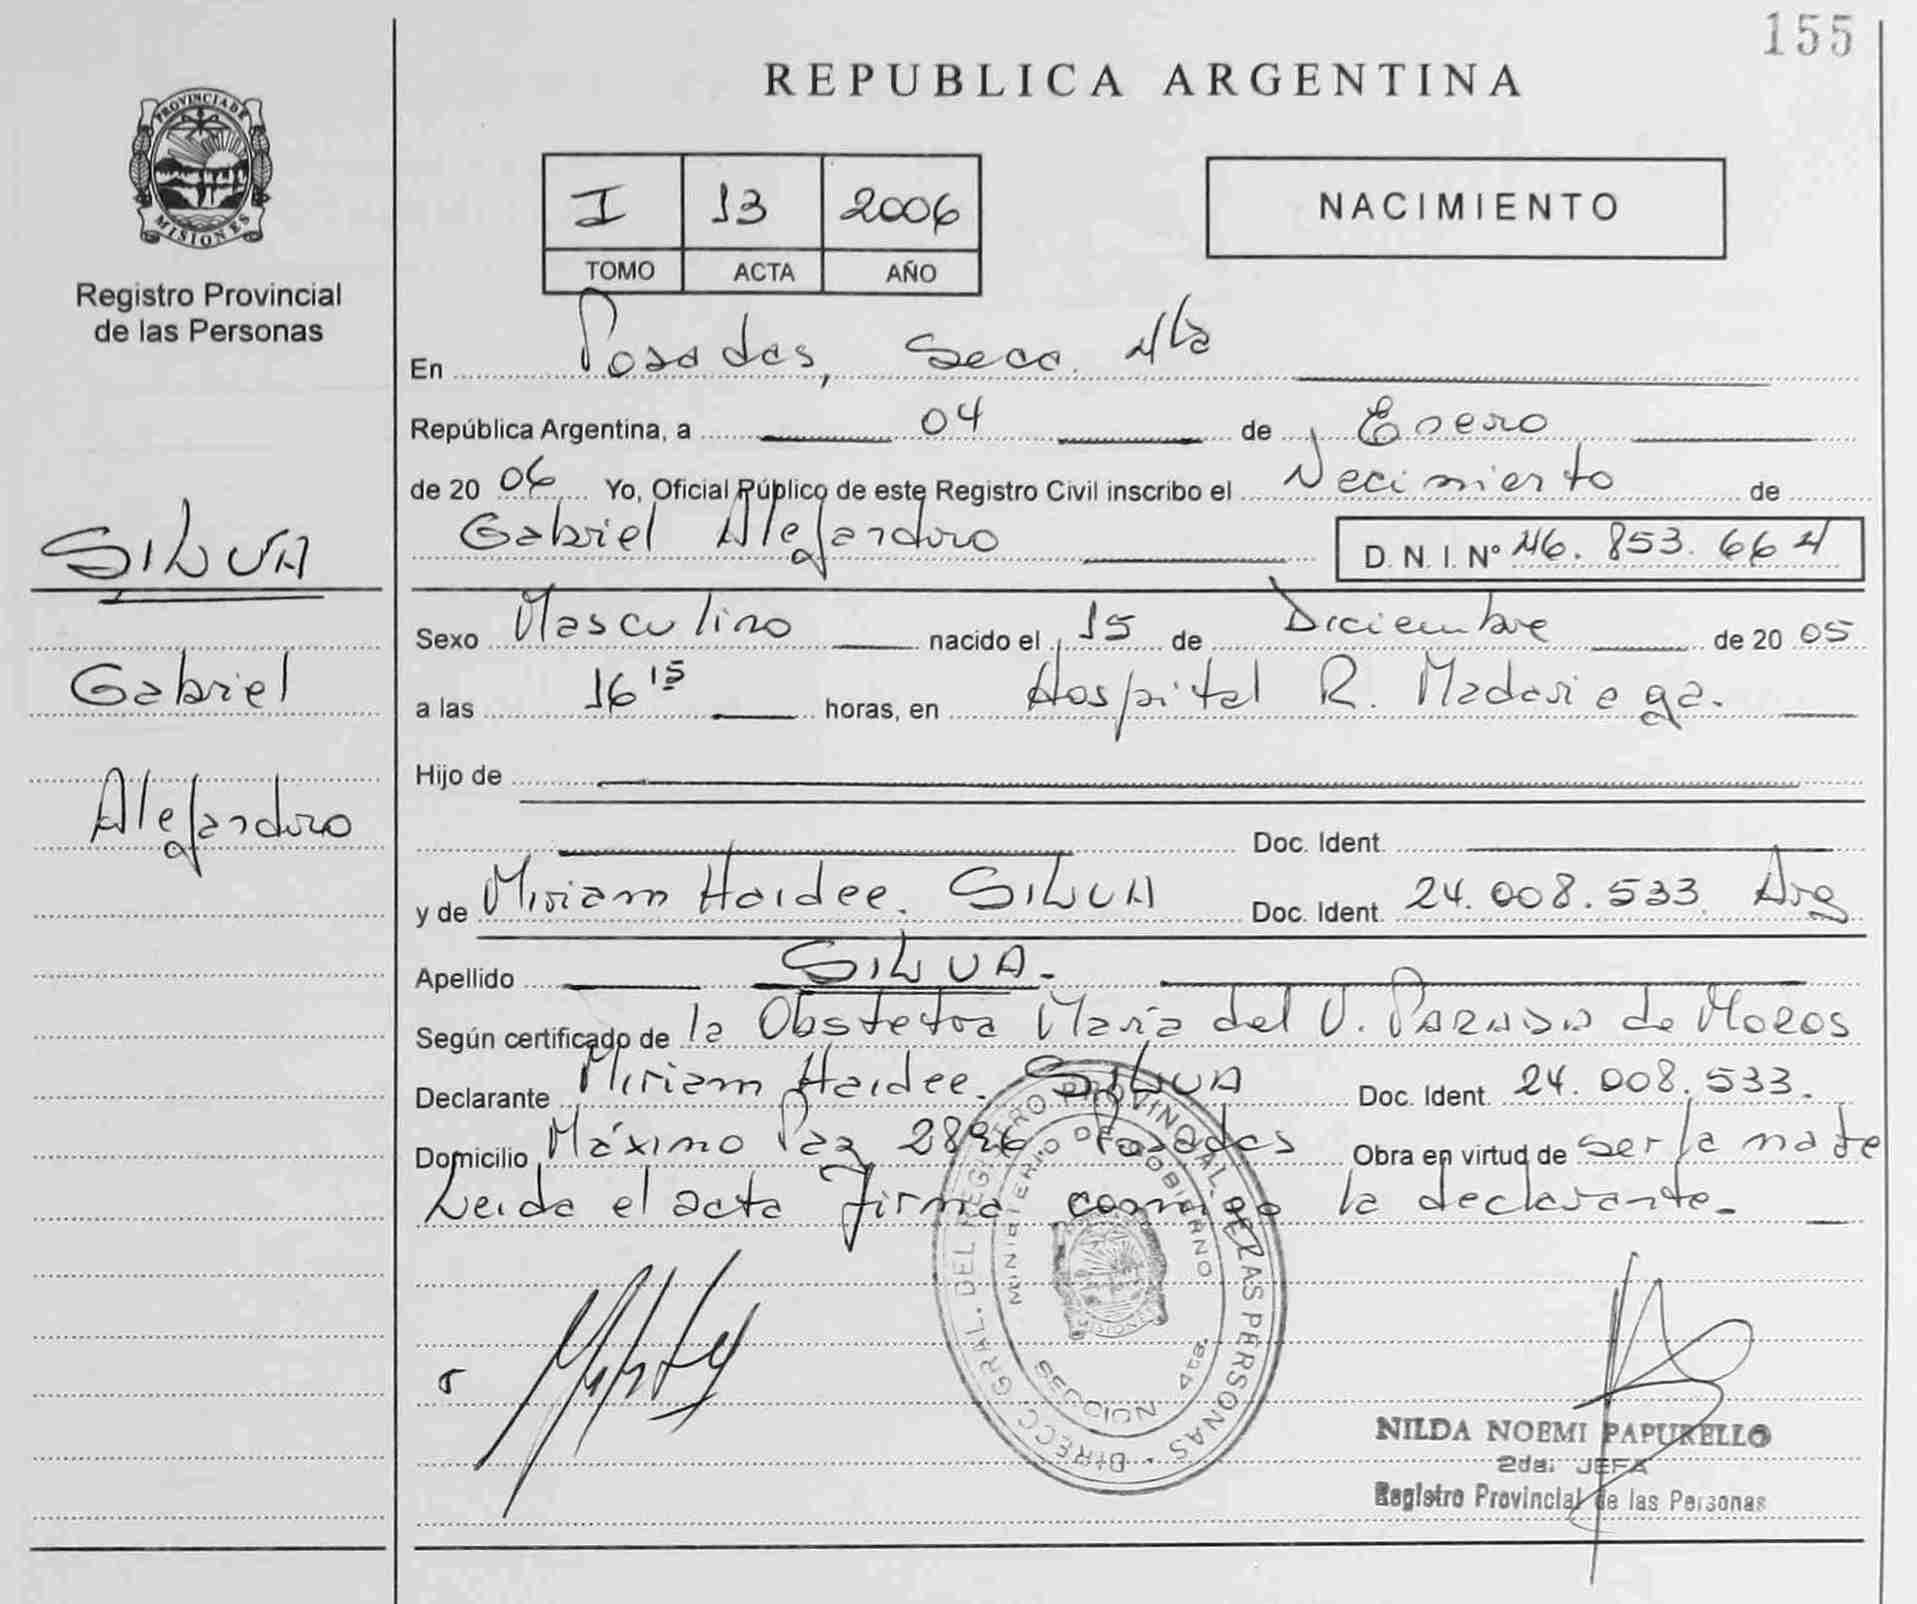 155
REPUBLICA ARGENTINA
PROVINCIA DE
MISIONES
Registro Provincial
de las Personas
I 13 2006
TOMO ACTA AÑO
NACIMIENTO
En Posadas, Secc. 4ta
República Argentina, a 04 de Enero
de 2006 Yo, Oficial Público de este Registro Civil inscribo el Nacimiento de
Gabriel Alejandro D. N. I. Nº 46.853.664
SILVA
Gabriel
Alejandro
Sexo Masculino nacido el 15 de Diciembre de 2005
a las 16 15 horas, en Hospital R. Madariaga.
Hijo de
Doc. Ident
y de Miriam Haidee. SILVA Doc. Ident 24.008.533 Arg
Apellido SILVA.-
Según certificado de la Obstetra María del V. de Moros
Declarante Miriam Haidee. SILVA Doc. Ident. 24.008.533.
Domicilio Máximo Paz 2896 Posadas Obra en virtud de ser la madre
Leida el acta firma conmigo la declarante.-
DIRECC. GRAL. DEL REGISTRO PROVINCIAL DE LAS PERSONAS
MINISTERIO DE GOBIERNO
SECCION 4ta.
MISIONES
NILDA NOEMI PAPURELLO
2da. JEFA
Registro Provincial de las Personas